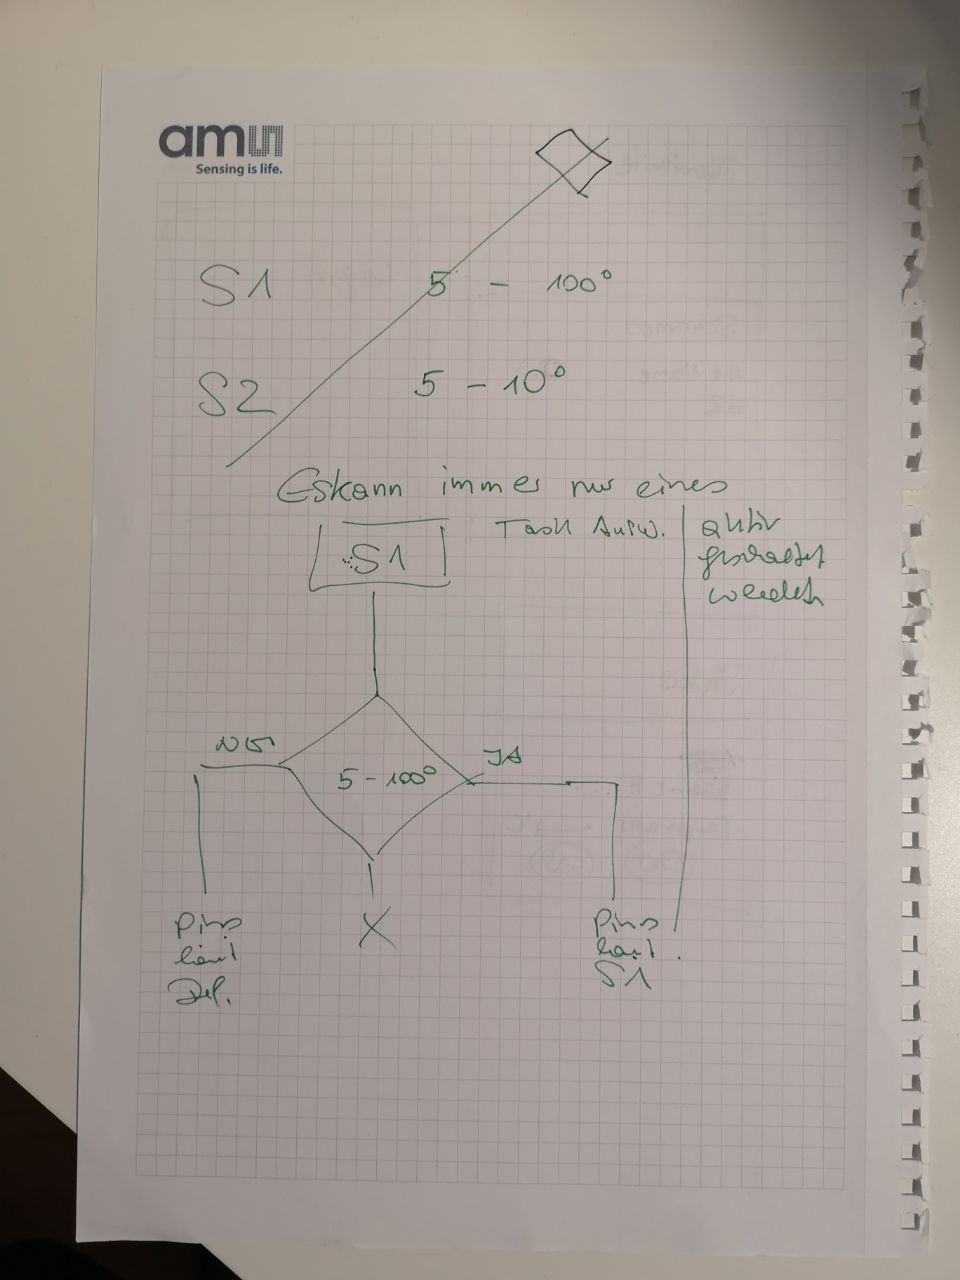 amu
Sensing is life.
S1 5 - 100°
S2 5 - 10°
Es kann immer nur eines
Task Ausw.
aktiv
geschaltet
werden
S1
NEIN
JA
5 - 100°
Pins
laut
Def.
X
Pins
laut
S1